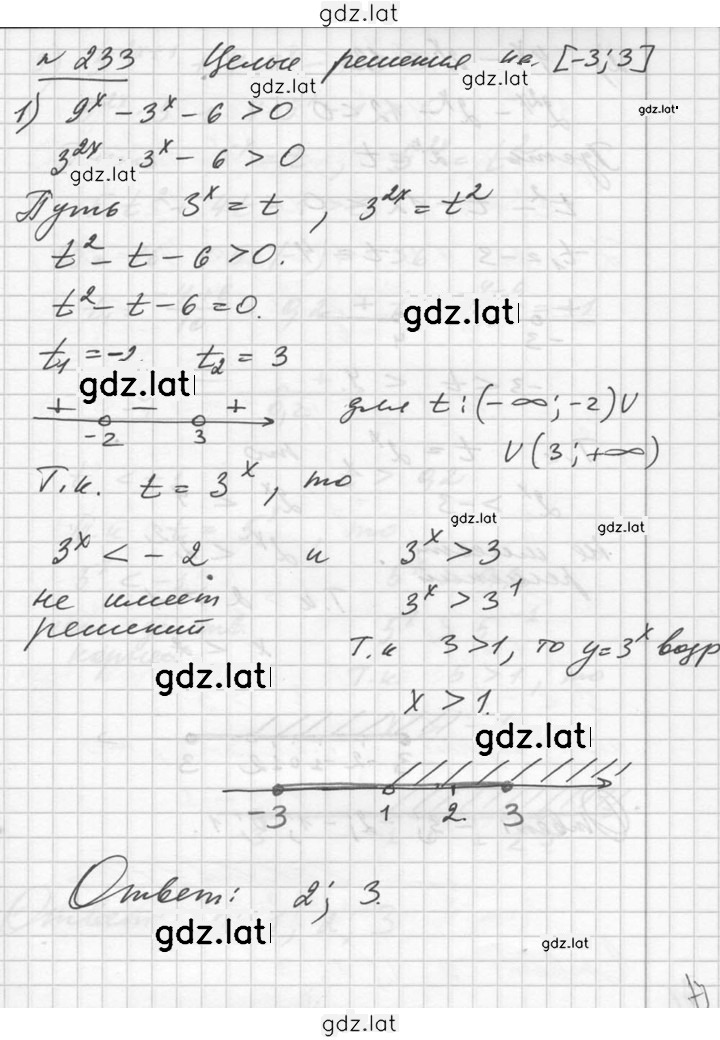 gdz.lat
№ 233 Целые решения на [-3;3]
gdz.lat gdz.lat
1) 9^x - 3^x - 6 > 0
gdz.lat
3^2x 3^x - 6 > 0
gdz.lat
Путь 3^x = t, 3^2x = t^2
t^2 - t - 6 > 0.
t^2 - t - 6 = 0.
gdz.lat
t1 = -2 t2 = 3
gdz.lat
+ - +
-2 3
для t: (-∞; -2) ∪
∪ (3; +∞)
Т.к. t = 3^x, то
gdz.lat gdz.lat
3^x < -2 и 3^x > 3
не имеет 3^x > 3^1
решений
Т.к 3 > 1, то y = 3^x возр
gdz.lat
x > 1.
gdz.lat
-3 1 2 3
Ответ: 2; 3.
gdz.lat gdz.lat
gdz.lat